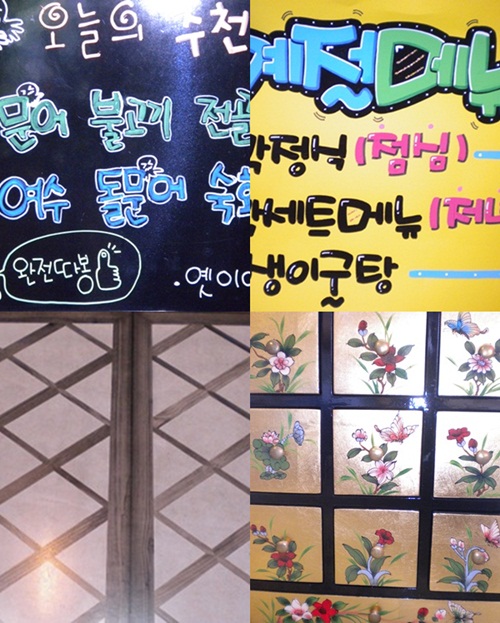 오늘의 추천
문어 불고기 전골
여수 돌문어 숙회
완전따봉
.옛이
계절메뉴
정식 (점심)
세트메뉴 (저녁
생이굴탕